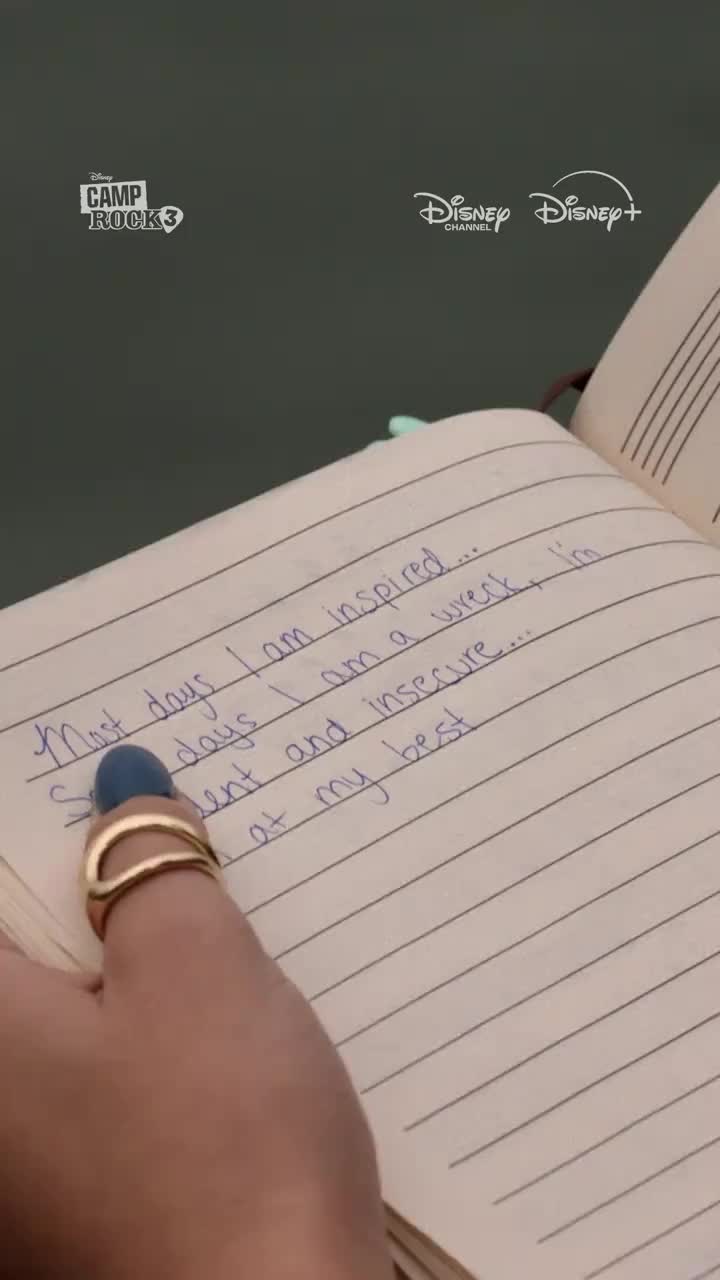 Disney
CAMP
ROCK 3
Disney
CHANNEL
Disney+
Most days I am inspired...
days I am a wreck, I'm
and insecure...
at my best